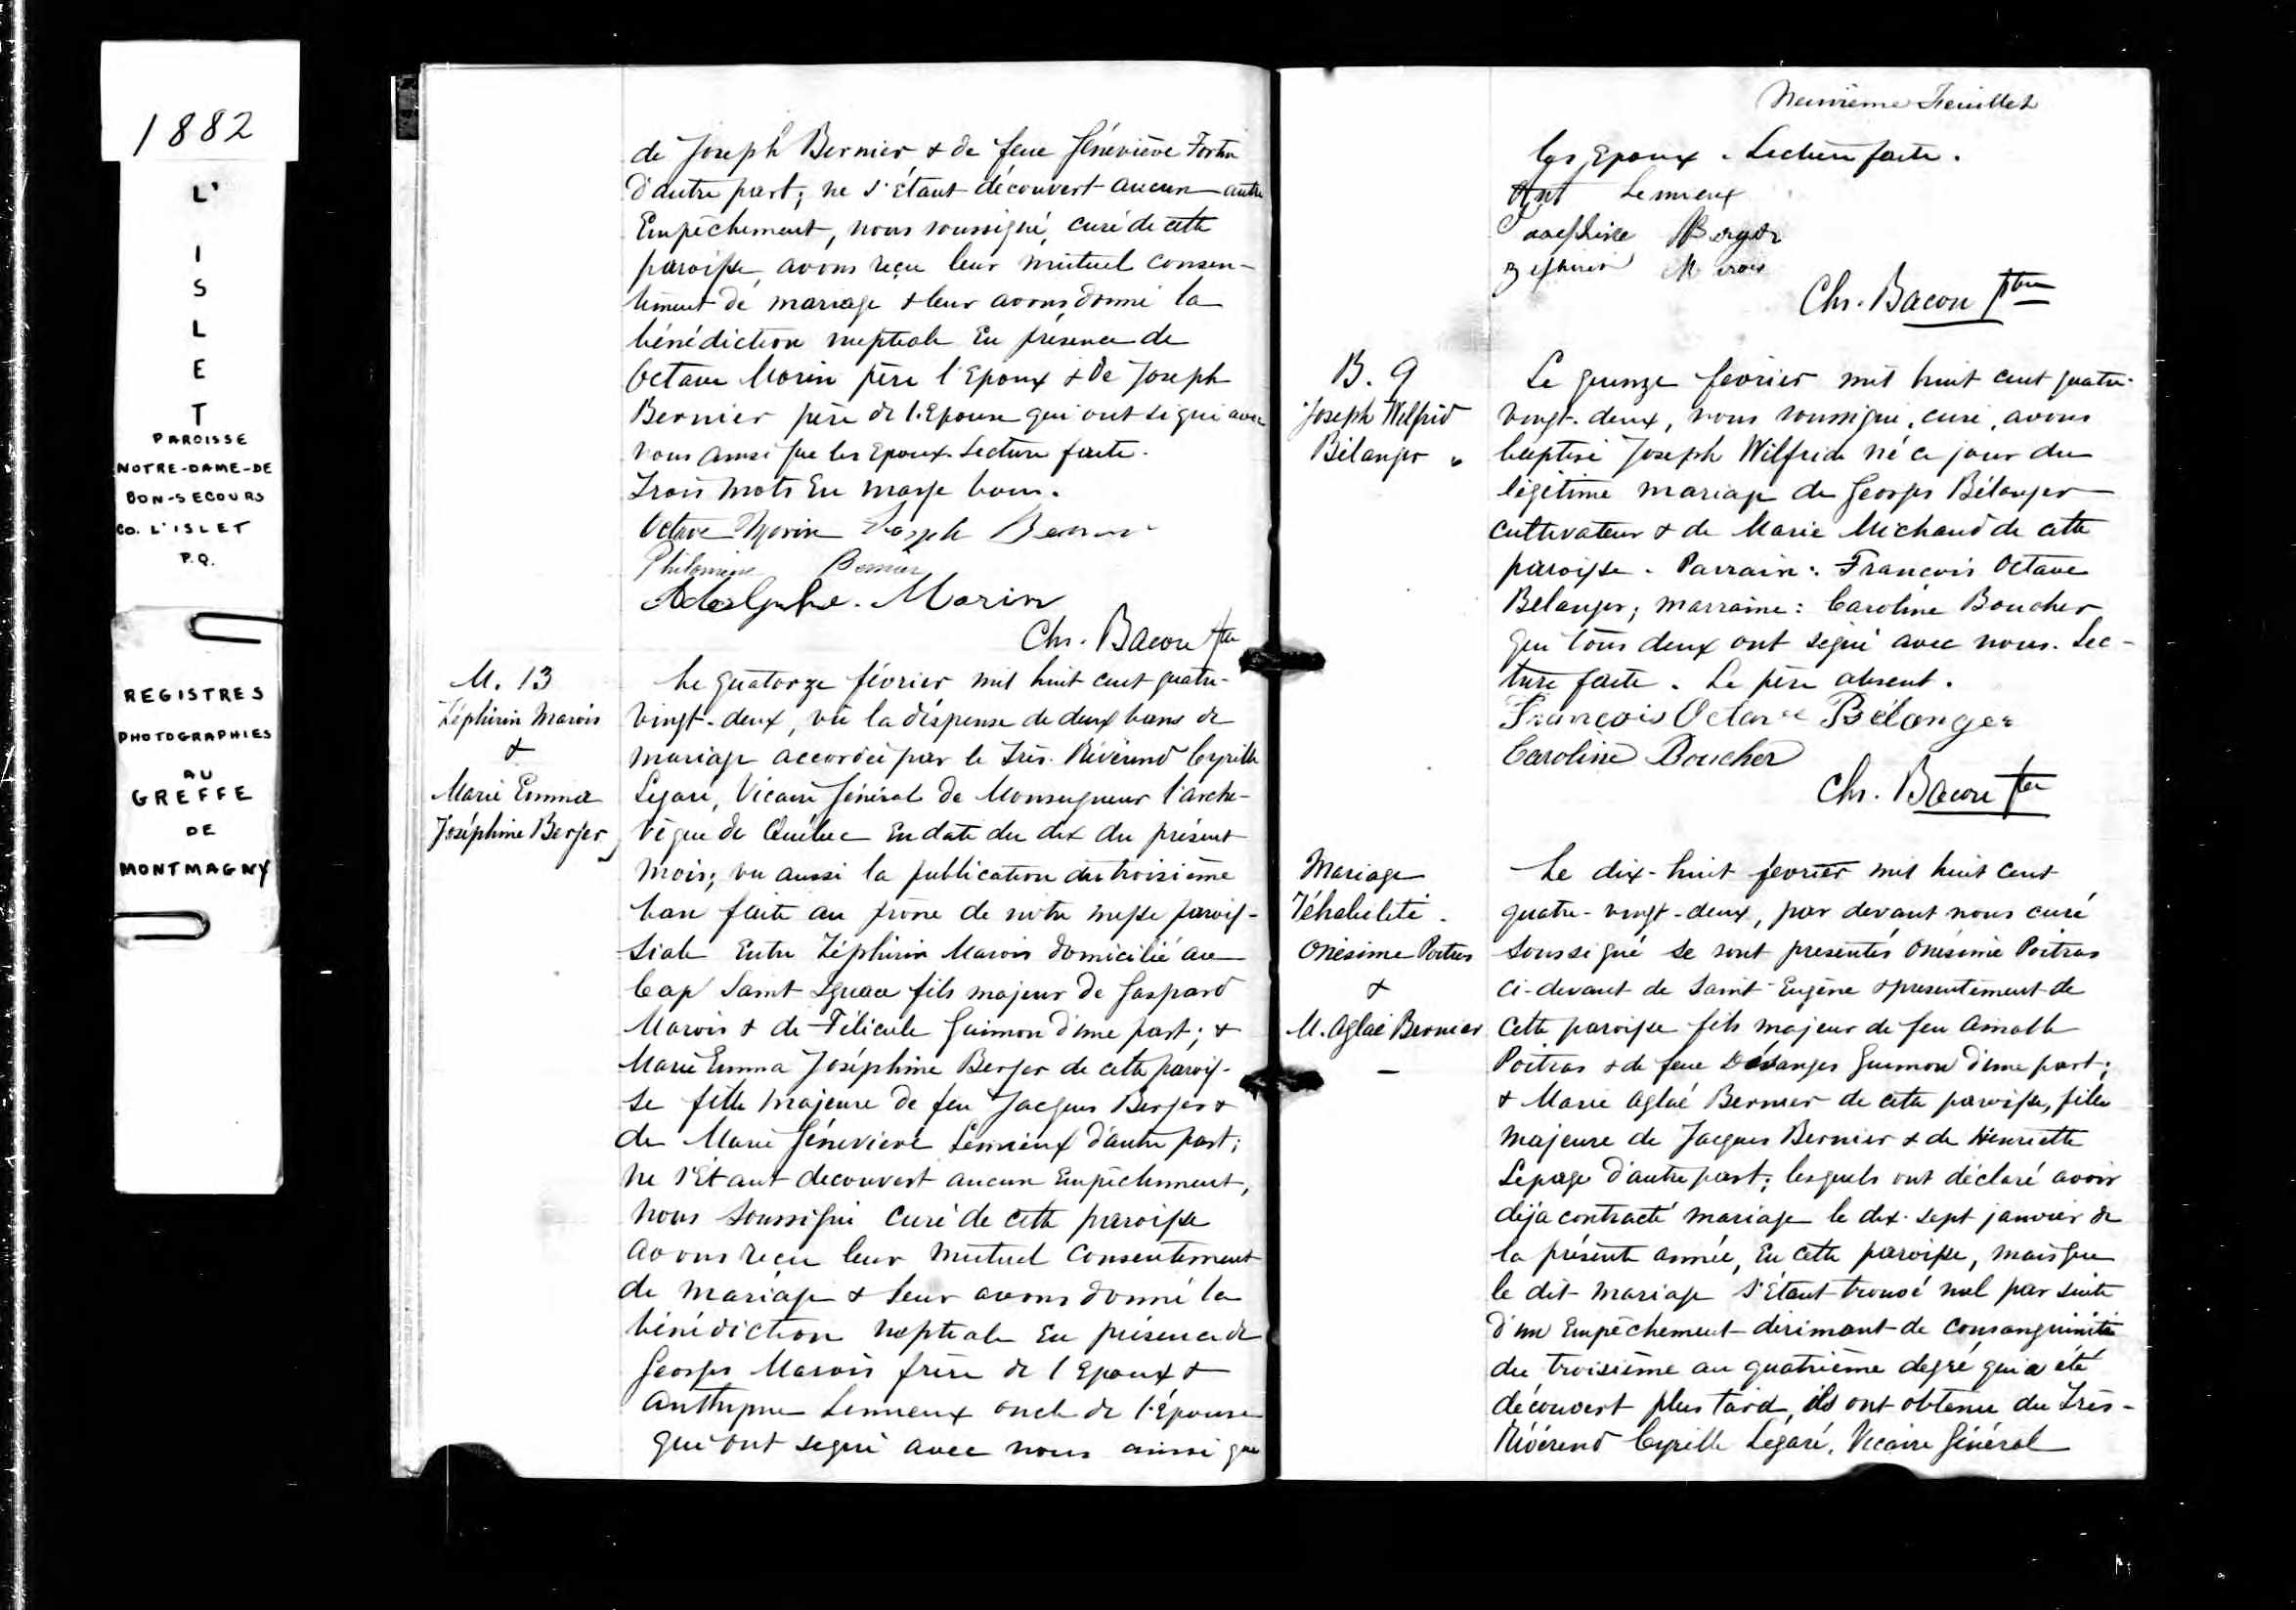 1882
L'
I
S
L
E
T
PAROISSE
NOTRE-DAME-DE
BON-SECOURS
CO. L'ISLET
P.Q.
REGISTRES
PHOTOGRAPHIES
AU
GREFFE
DE
MONTMAGNY
de Joseph Bernier & de feue Géneviève Fortin
d'autre part; ne s'étant découvert aucun autre
Empêchement, nous soussigné, curé de cette
paroisse, avons reçu leur mutuel consen-
tement de mariage & leur avons donné la
bénédiction nuptiale En présence de
Octave Morin père l'Epoux & de Joseph
Bernier père de l'Epouse qui ont signé avec
nous ainsi que les Epoux. Lecture faite.
Trois mots En marge bons.
Octave Morin Joseph Bernier
Philomène Bernier
Adolphe. Morin
Chs. Bacon Ptre
M. 13
Zéphirin Marois
&
Marie Emma
Joséphine Berger
Le quatorze février mil huit cent quatre-
vingt-deux, vu la dispense de deux bans de
mariage accordée par le Très Révérend Cyrille
Légaré, Vicaire Général de Monseigneur l'arche-
vêque de Québec En date du dix du présent
mois; vu aussi la publication du troisième
ban faite au prône de notre messe parois-
siale Entre Zéphirin Marois domicilié au
Cap Saint Ignace fils majeur de Gaspard
Marois & de Félicule Guimon d'une part; &
Marie Emma Joséphine Berger de cette parois-
se fille majeure de feu Jacques Berger &
de Marie Géneviève Lemieux d'autre part;
ne s'Etant decouvert aucun Empêchement,
nous soussigné curé de cette paroisse
avons reçu leur mutuel consentement
de mariage & leur avons donné la
bénédiction nuptiale En présence de
Georges Marois frère de l'Epoux &
Lemieux oncle de l'épouse
qui ont signé avec nous ainsi que
Neuvième Feuillet
les Epoux. Lecture faite.
Ant Lemieux
Joséphine Berger
Zéphirin Marois
Chs. Bacon Ptre
B. 9
Joseph Wilfrid
Bélanger
Le quinze février mil huit cent quatre-
vingt-deux, nous soussigné, curé, avons
baptisé Joseph Wilfrid né ce jour du
légitime mariage de Georges Bélanger
cultivateur & de Marie Michaud de cette
paroisse. Parrain: François Octave
Bélanger; marraine: Caroline Boucher
qui tous deux ont signé avec nous. Lec-
ture faite. Le père absent.
François Octave Bélanger
Caroline Boucher
Chs. Bacon Ptre
Mariage
réhabilité.
Onésime Poitras
&
M. Aglaé Bernier
—
Le dix-huit février mil huit cent
quatre-vingt-deux, par devant nous curé
soussigné se sont presentés Onésime Poitras
ci-devant de Saint-Eugène & presentement de
cette paroisse fils majeur de feu Amable
Poitras & de feue Désanges Guimon d'une part;
& Marie Aglaé Bernier de cette paroisse, fille
majeure de Jacques Bernier & de Henriette
Lepage d'autre part; lesquels ont déclaré avoir
déjà contracté mariage le dix-sept janvier de
la présente année, En cette paroisse, mais que
le dit mariage s'étant trouvé nul par suite
d'un Empêchement dirimant de consanguinité
du troisième au quatrième degré qui a été
découvert plus tard, ils ont obtenu du Très-
Révérend Cyrille Légaré, Vicaire Général